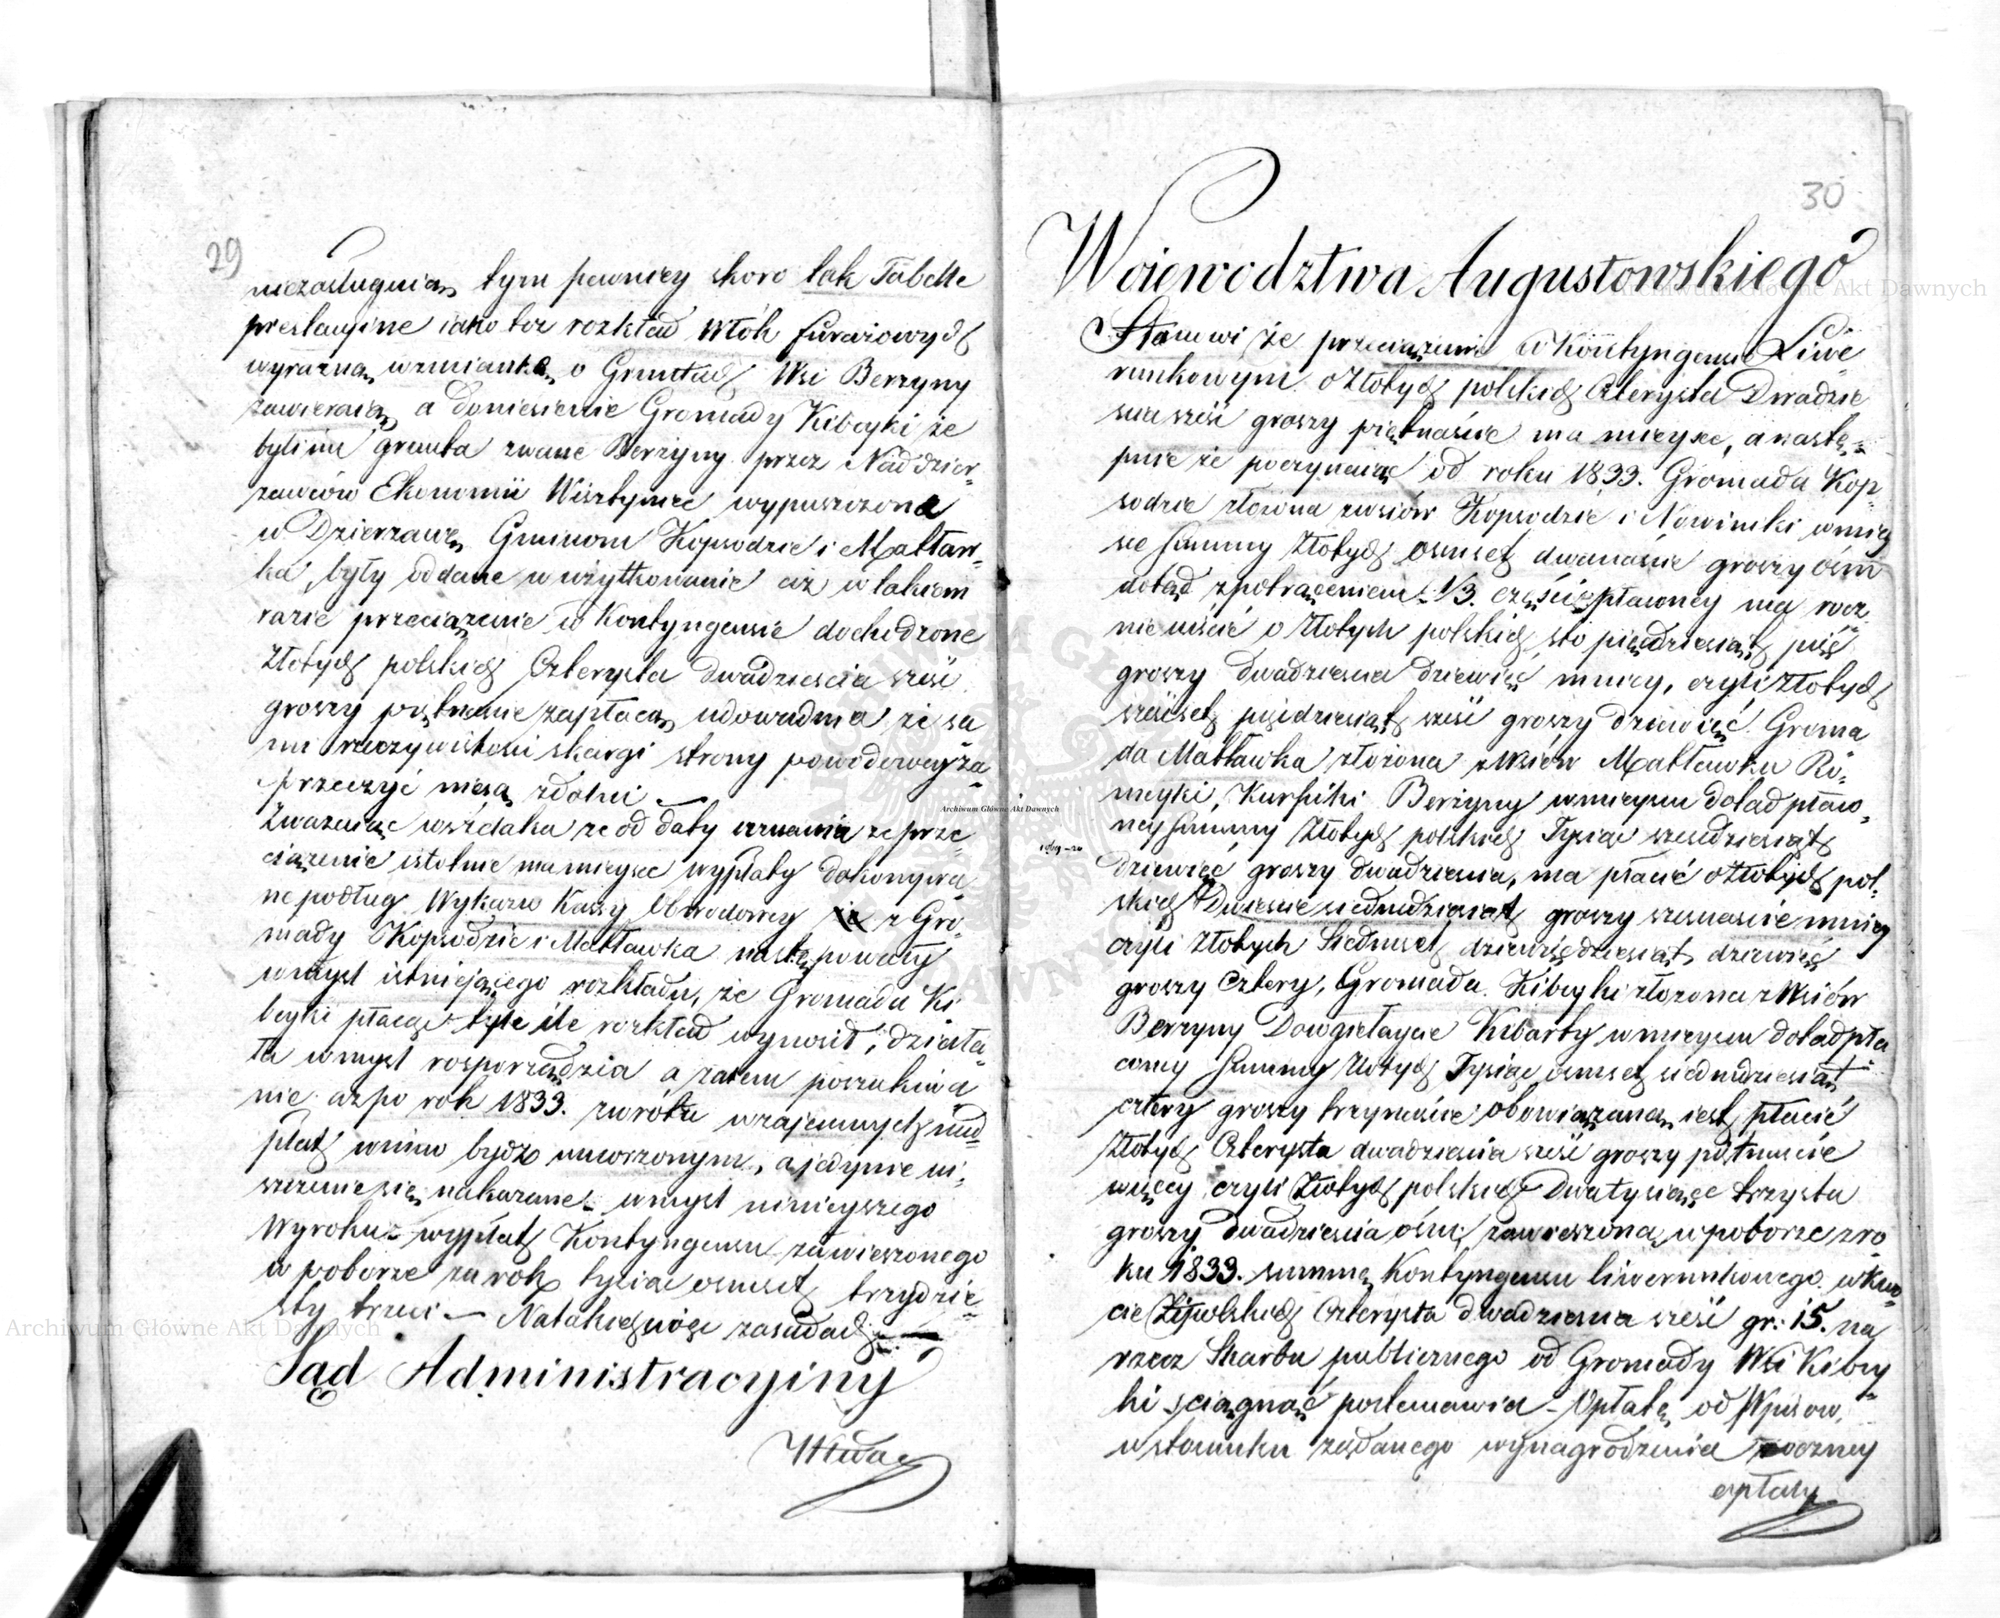 29
niezasługuią, tym pewniey skoro tak Tabelle
prestacyine iako też rozkład Włók furażowych
wyraźną wzmiankę o Gruntach Wsi Berzyny
zawieraią, a doniesienie Gromady Kibeyki że
byli im grunta zwane Berżyny przez Naddzier-
żawców Ekonomii Wisztyniec wypuszczone
w Dzierżawę Gminom Kopsodzie i Matław-
ka, były oddane w użytkowanie
razie przeciążenie w Kontyngensie dochodzone
Złotych polskich Czterysta dwadzieścia sześć
groszy piętnaście zapłacą, udowadnia że sa
mi rzeczywistości skargi strony powodowey za-
przeczyć niesą zdolni —
Zważaiąc wszelako że od daty uznania że prze
ciążenie istotnie ma mieysce wypłaty dokonywa
ne podług Wykazu Kassy Obwodowey z Gro-
mady Kopsodzie i Matławka następowały
w myśl istniejącego rozkładu, że Gromada Ki
beyki płacąc tyle ile rozkład wynosił, działa-
ła w myśl rosporządzia a zatem poszukiwa
nie aż po rok 1833. zwrótu wzajemnych nad-
płat winno bydź umorzonym, a jedynie ui-
szczenie się nakazane w myśl niniejszego
Wyroku wypłat Kontyngensu zawieszonego
w poborze za rok tysiąc osmset trzydzie-
sty trzeci — Na takich więc zasadach —
Sąd Administracyiny
30
Woiewodztwa Augustowskiego
Stanowi że przeciążenie w Kontyngensie Liwe
runkowym o Złotych polskich Czterysta Dwadzie
ścia sześć groszy piętnaście ma mieysce, a nastę-
pnie że poczynaiąc od roku 1833. Gromada Kop-
sodzie złożona z wsiów Kopsodzie i Nowiniki w miey
sce Summy Złotych osmset dwanaście groszy ośm
dotąd z potrąceniem 1/3. części płaconey ma rocz-
nie uiścić o Złotych polskich sto pięćdziesiąt pięć
groszy dwadzieścia dziewięć mniey, czyli Złotych
sześćset pięćdziesiąt sześć groszy dziewięć. Groma
da Matławka złożona z Wsiów Matławka Ro-
meyki, Kurpiki Berżyny w mieyscu dotąd płaco-
ney Summy Złotych polskich Tysiąc sześćdziesiąt
dziewięć groszy dwadzieścia, ma płacić o Złotych pol-
skich Dwieście siedmdziesiąt groszy szesnaście mniey
czyli Złotych Siedmset dziewięćdziesiąt dziewięć
groszy cztery, Gromada Kibeyki złożona z Wsiów
Berzyny Dowgiełaycie Kibarty w mieyscu dotąd pła
coney Summy Złotych Tysiąc osmset siedmdziesiąt
cztery groszy trzynaście obowiązaną iest płacić
Złotych Czterysta dwadzieścia sześć groszy piętnaście
więcey czyli Złotych polskich Dwa tysiące trzysta
groszy dwadzieścia ośm; zawieszoną w poborze z ro
ku 1833. summę Kontyngensu liwerunkowego w kwo-
cie Zł polskich Czterysta dwadzieścia sześć gr: 15. na
rzecz Skarbu publicznego od Gromady Wsi Kibey-
ki ściągnąć postanawia — Opłatę od Wpisow,
w stosunku żądanego wynagrodzenia roczney
opłaty